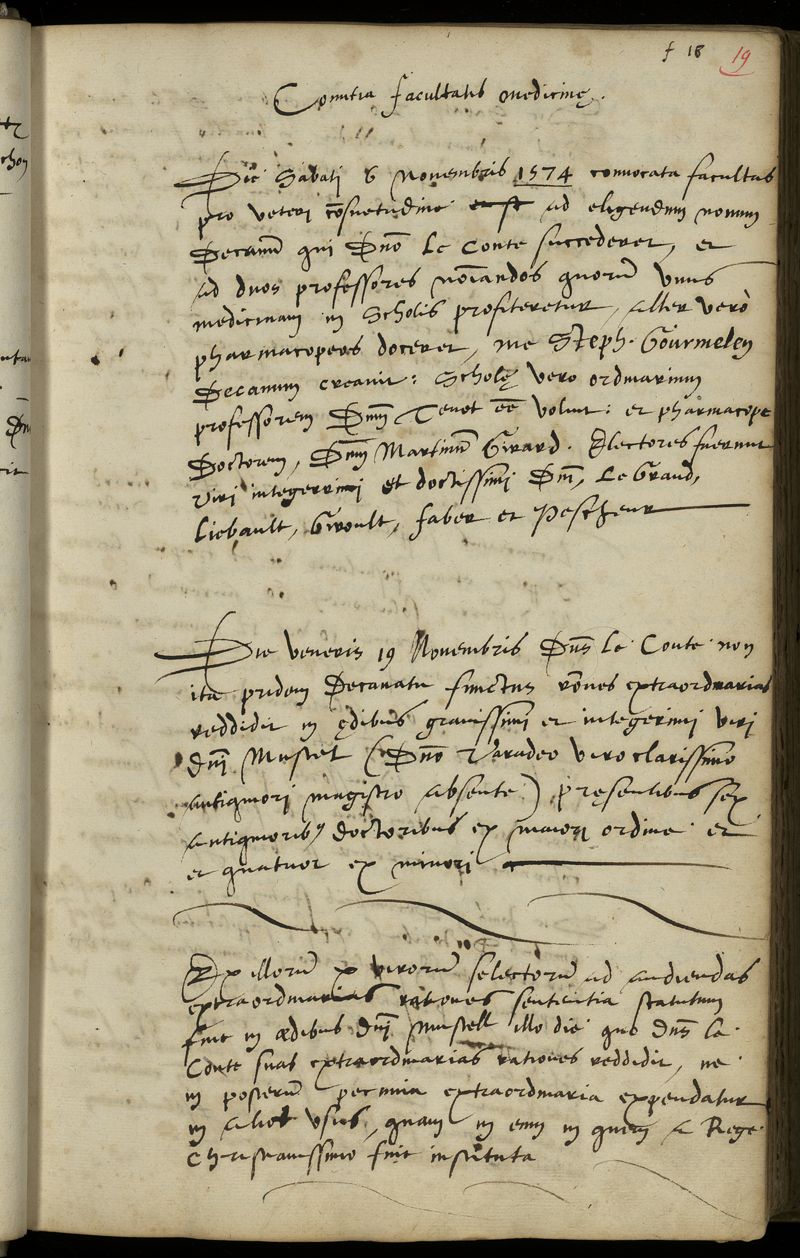 f 18 19
Comitia facultatis medicinę.
Die Sabati 6 Novembris 1574 convocata facultas
pro veteri cōsuetudine ad eligendum novum
Decanū qui Dno Le Conte succederet, et
ad duos professores noīandos quorū unus
medicinam in Scholis profiteretur, alter vero
pharmacopeos doceret, me Steph. Gourmelen
Decanum creavit: Scholę vero ordinarium
professorem Dnm Tenot eē voluit: et pharmacope
Doctorem, Dnm Martinū Girard. Electores fuerunt
viri integerrimi et doctissimi Dni, Le Grand,
Liebault, Giroult, faber et Pescheur
Die Veneris 19 Novembris Dns Le Conte non
ita pridem Decanatu functus rōnes extraordinarias
reddidit in ędibus gravissimi et integerimi viri
dni Mustel (Dno Varadeo viro clarissimo
antiquiori magistro absente) pręsentibus sex
antiquioribꝰ doctoribus ex maiori ordine et
et quatuor ex minori
Ex illorū x virorū selectorū ad audiendas
extraordinarias rationes sententia statutum
fuit in ædibus dni Mustell illo die quo Dns Le
Conte suas extraordinarias rationes reddidit, ne
in posterū pecunia extraordinaria expendatur
in alios usus, quam in eum in quem a Rege
Christianissimo fuit instituta